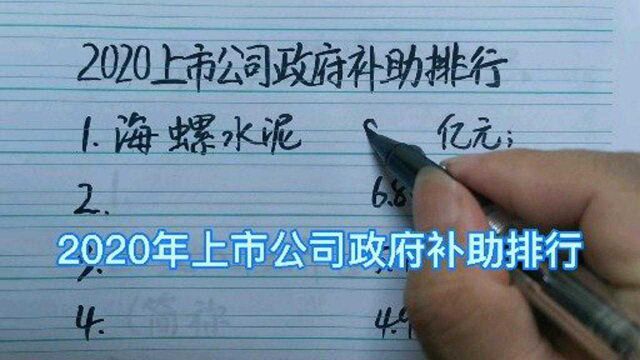 2020上市公司政府补助排行
1.海螺水泥 亿元;
2. 6.8
2020年上市公司政府补助排行
4. 4.9